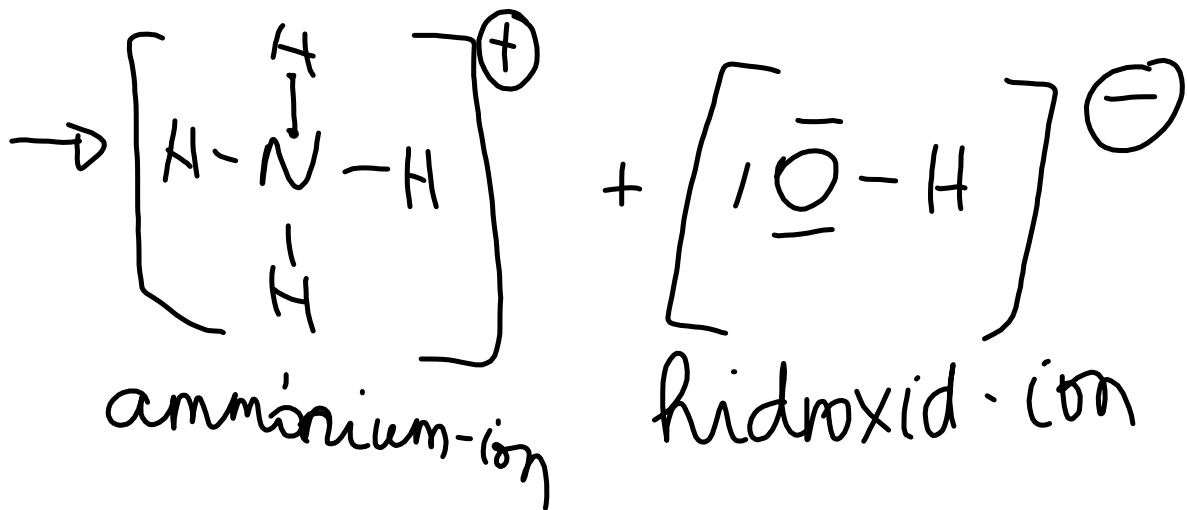 → [H-N-H]⊕ + [|O-H]⊖
H
H
ammónium-ion
hidroxid-ion